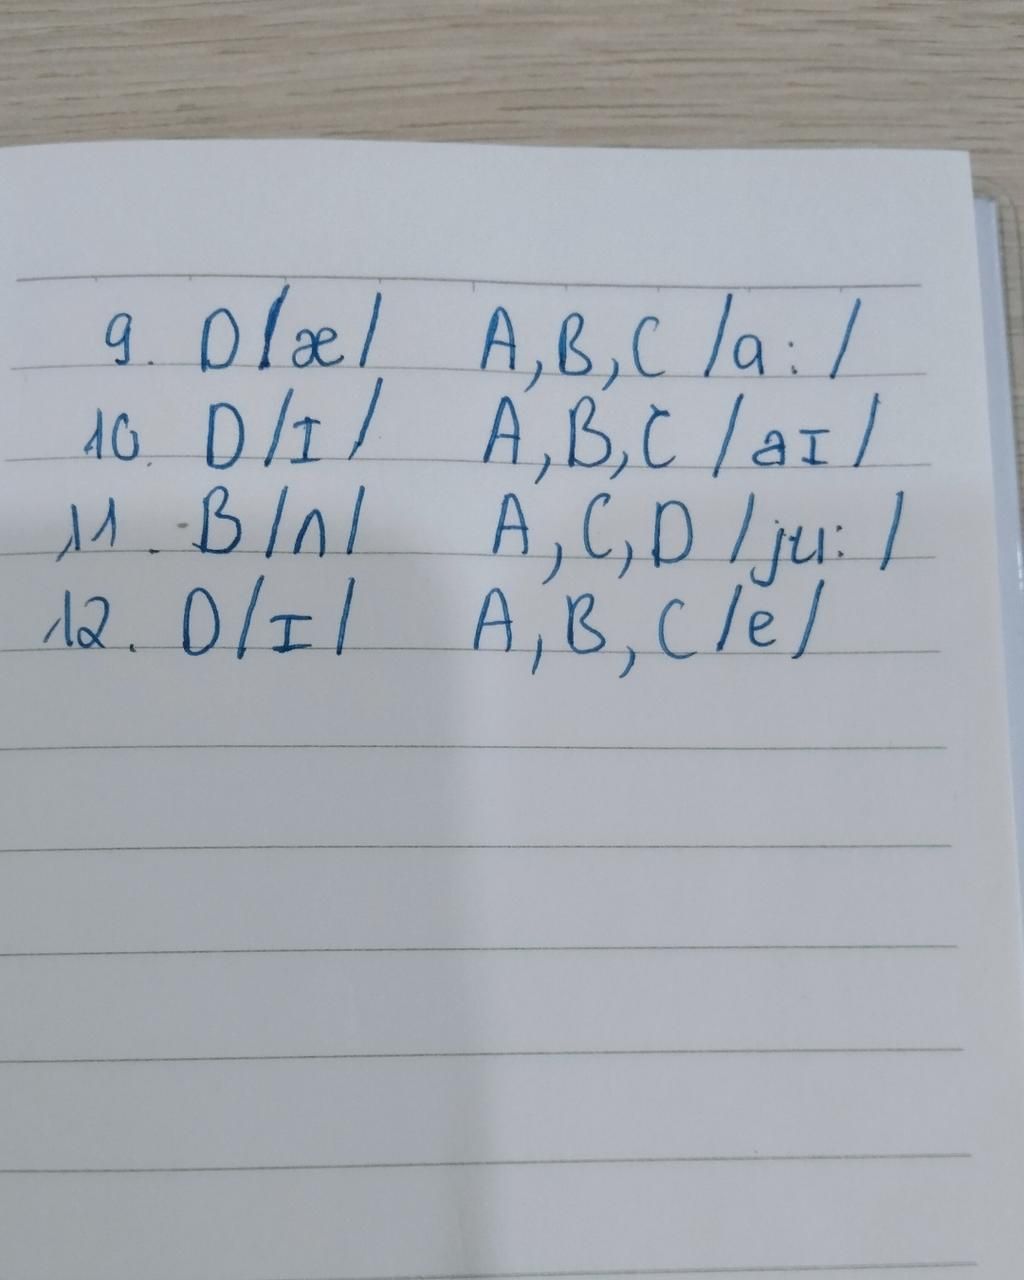 9. D /æ/ A, B, C /a: /
10. D /I/ A, B, C / aI /
11. B /ʌ/ A, C, D /ju: /
12. D /I/ A, B, C /e/